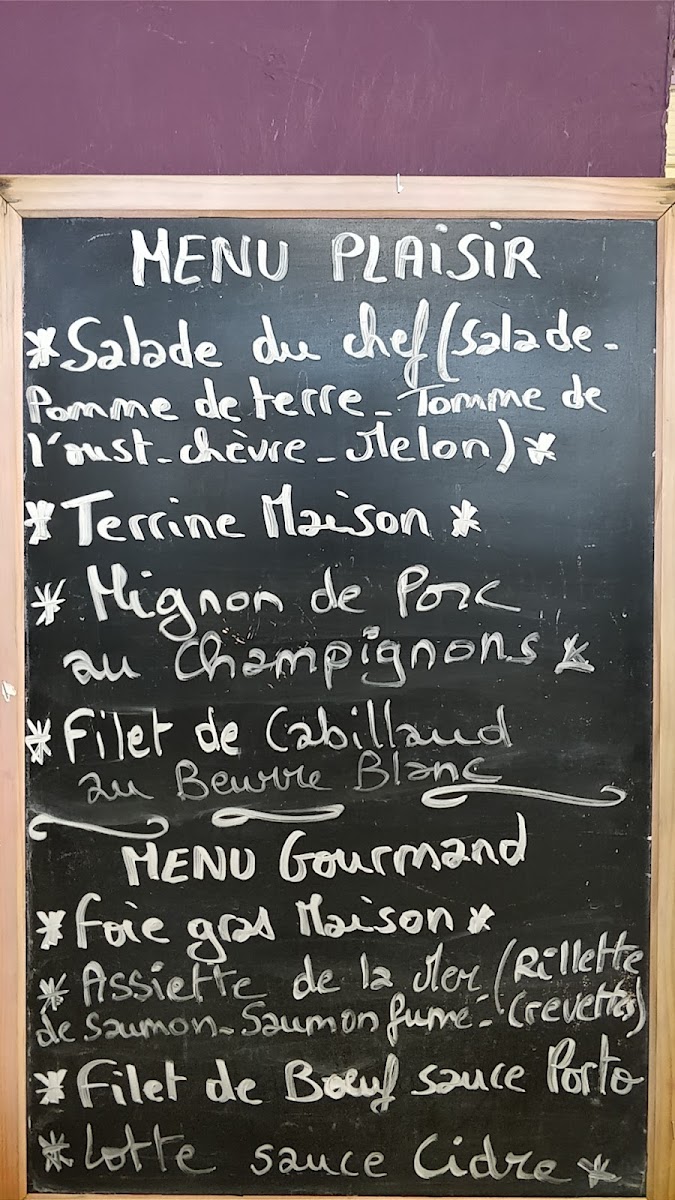 MENU PLAISIR
*Salade du chef (Salade-
Pomme de terre - Tomme de
l'oust - chèvre - Melon) *
* Terrine Maison *
* Mignon de Porc
au Champignons *
* Filet de Cabillaud
au Beurre Blanc
MENU Gourmand
* Foie gras Maison *
* Assiette de la Mer (Rillette
de saumon - Saumon fumé - Crevettes)
* Filet de Bœuf sauce Porto
* Lotte sauce Cidre *